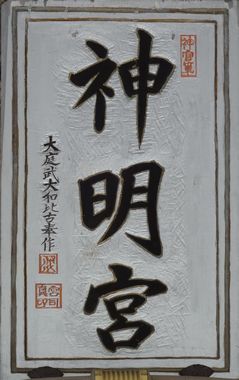 神明宮
大庭武大和比古奉作